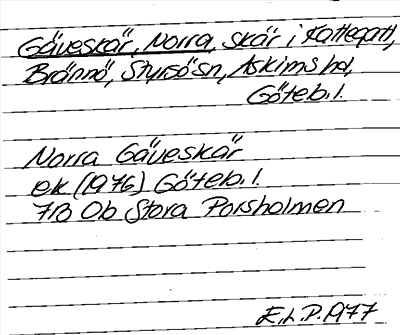 Gäveskär, Norra, skär i Kattegatt,
Brännö, Styrsö sn, Askims hd,
Göteb. l.
Norra Gäveskär
ek (1976) Göteb. l.
7B 0b Stora Porsholmen
E.L.P. 1977